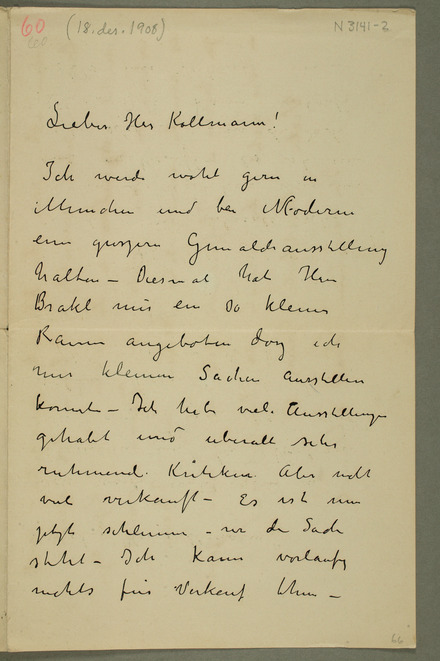 60
60
(18. des. 1908)
N 3141-2
Lieber Herr Kollmann!
Ich werde wohl gern in
München und bei Moderne
eine grossere Gemäldeausstellung
halten – Diesmal hat Herr
Brakl mir ein so kleines
Raum angeboten das ich
nur kleinen Sachen ausstellen
konnte – Ich habe viele Ausstellungen
gehabt und uberall sehr
ruhmende Kritiken Aber nicht
viel verkauft – Es ist nun
jetzt schlimm – wie die Sache
steht – Ich kann vorläufig
nichts für Verkauf thun –
66